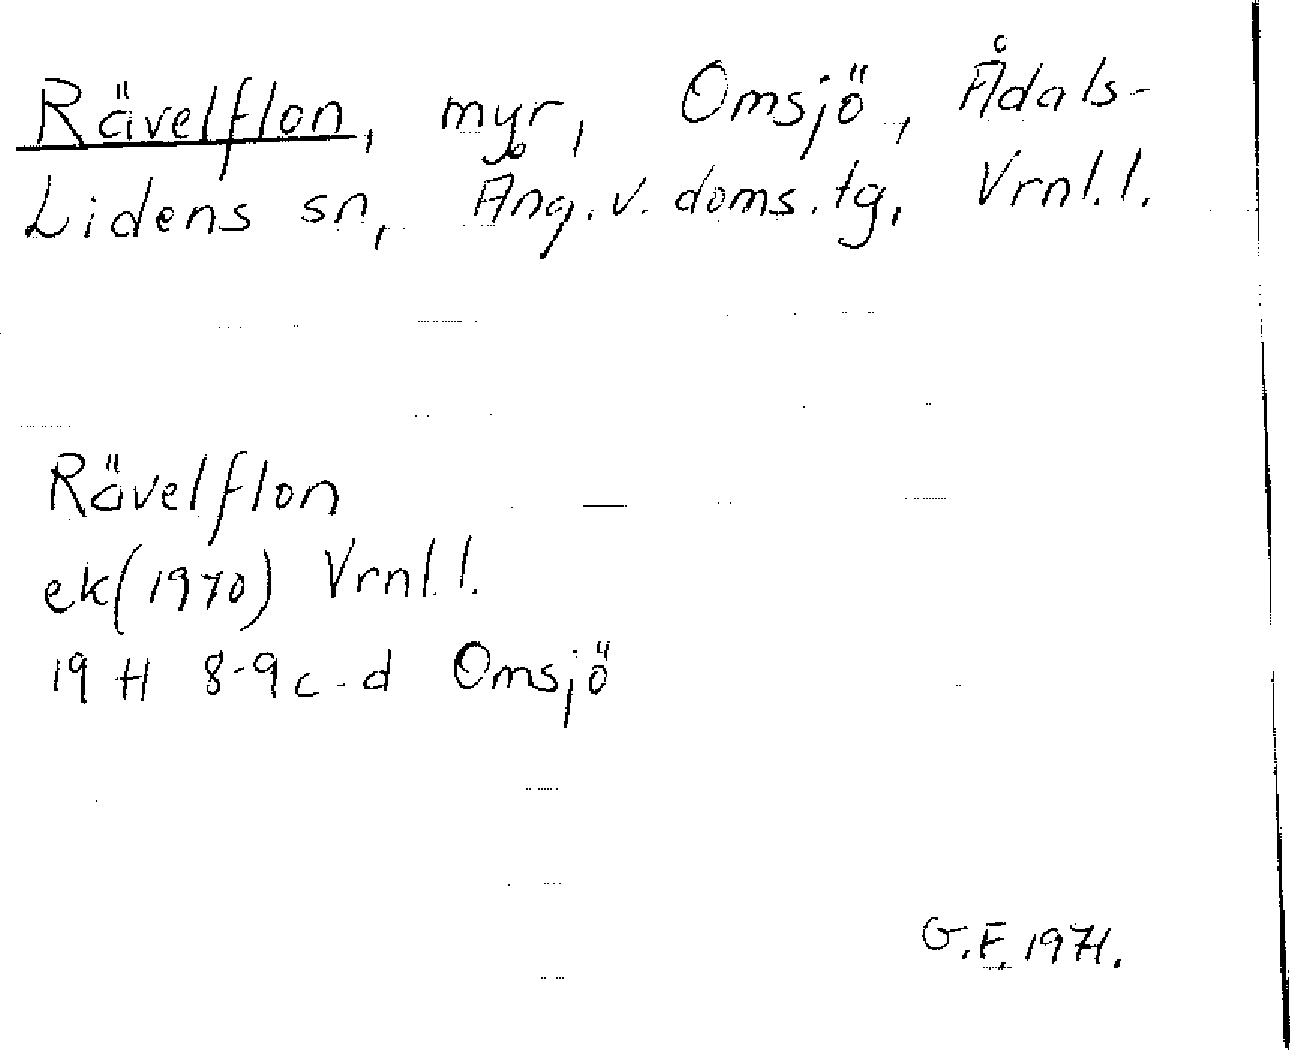 Rävelflon, myr, Omsjö, Ådals-
Lidens sn, Ång. v. doms. tg, Vrnl. l.
Rävelflon
ek (1970) Vrnl. l.
19 H 8-9c-d Omsjö
G.F. 1971.